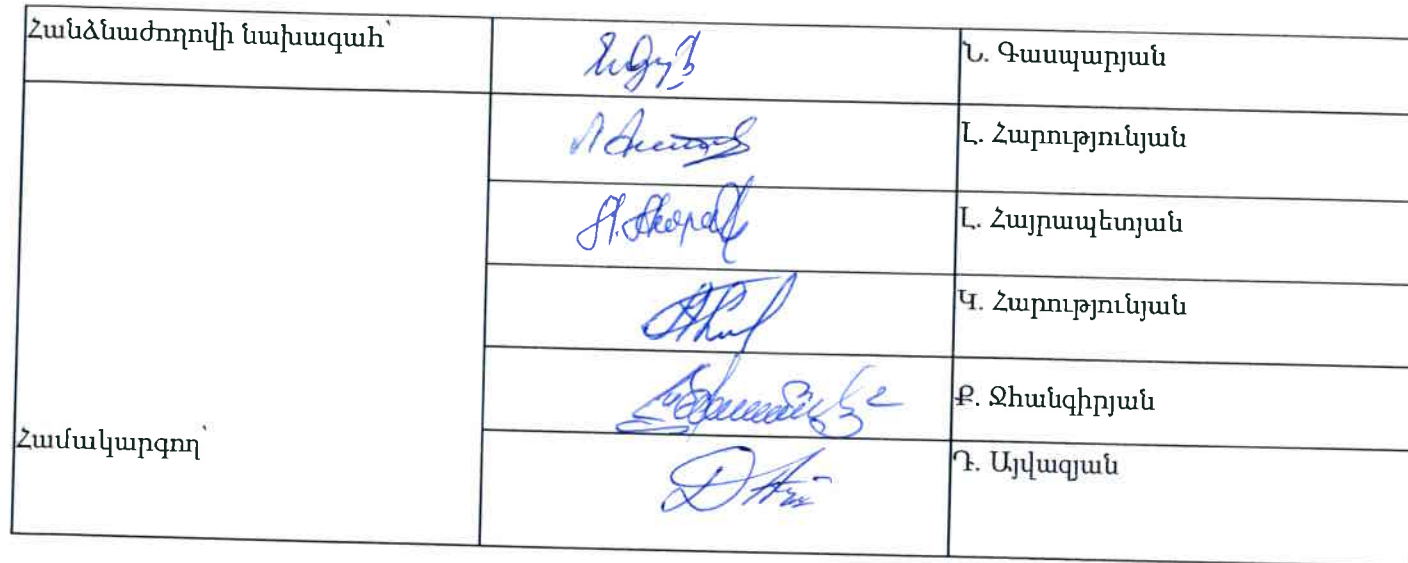 Հանձնաժողովի նախագահ՝ Ն. Գասպարյան
Լ. Հարությունյան
Լ. Հայրապետյան
Կ. Հարությունյան
Ք. Ջհանգիրյան
Համակարգող՝ Դ. Այվազյան